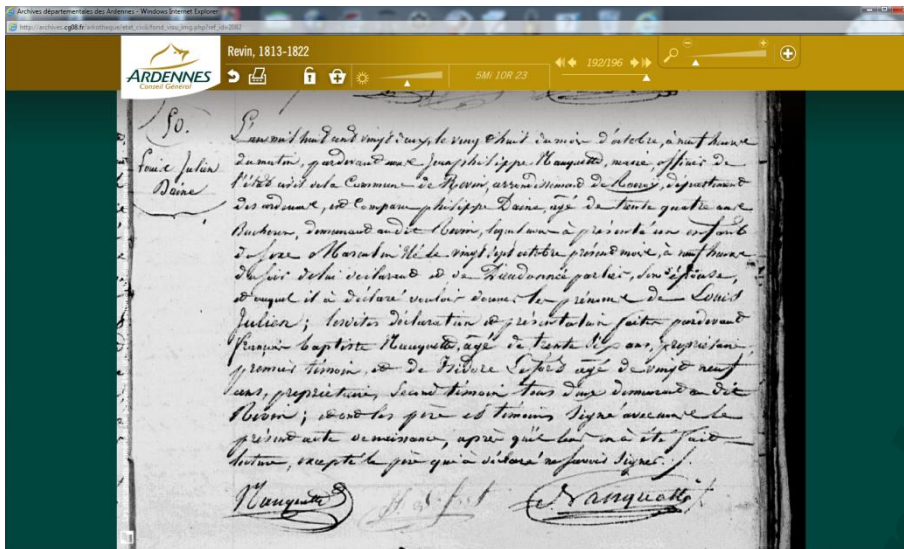 Archives départementales des Ardennes - Windows Internet Explorer
Revin, 1813-1822
ARDENNES
Conseil Général
5Mi 10R 23
192/196
50.
Louis Julien
Daine
L'an mil huit cent vingt deux, le vingt huit du mois d'octobre, à neuf heures
du matin, pardevant nous Jean philippe Nanquette, maire, officier de
l'état civil de la Commune de Revin, arrondissement de Rocroy, département
des ardennes, est Comparu philippe Daine, agé de trente quatre ans
Bucheron, demeurant audit Revin, lequel nous a présenté un enfant
du sexe Masculin Né le vingt sept octobre présent mois, à neuf heures
du soir de lui déclarant et de Dieudonnée partier, son épouse,
et auquel il a déclaré vouloir donner les prénoms de Louis
Julien; lesdites déclaration et présentation faites pardevant
françois baptiste Nanquette, agé de trente ans, propriétaire,
premier témoin, et de Isidore agé de vingt neuf
ans, propriétaire, Second témoin tous deux demeurant au dit
Revin; et ont les père et témoins Signé avec nous le
présent acte de naissance, après qu'il leur en a été fait
lecture, excepté le père qui a déclaré ne savoir Signer.
Nanquette
Nanquette